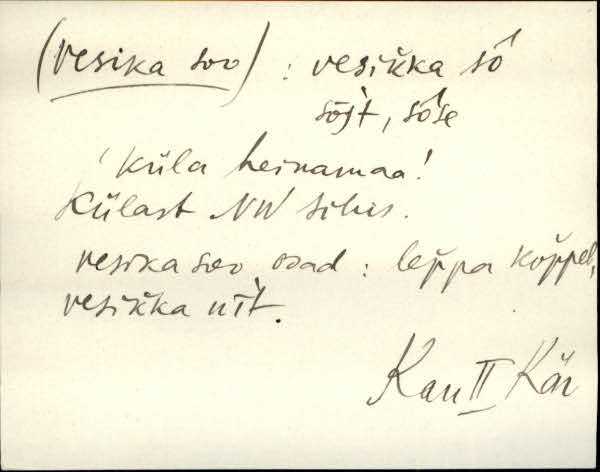 (vesika soo) : vesik̆ka sô
sōj̀t, sôse
'küla heinamaa!
Külast NW sihis.
vesika soo osad : lep̆pa kop̆pel,
vesik̆ka nīt̀.
Kan II Kär